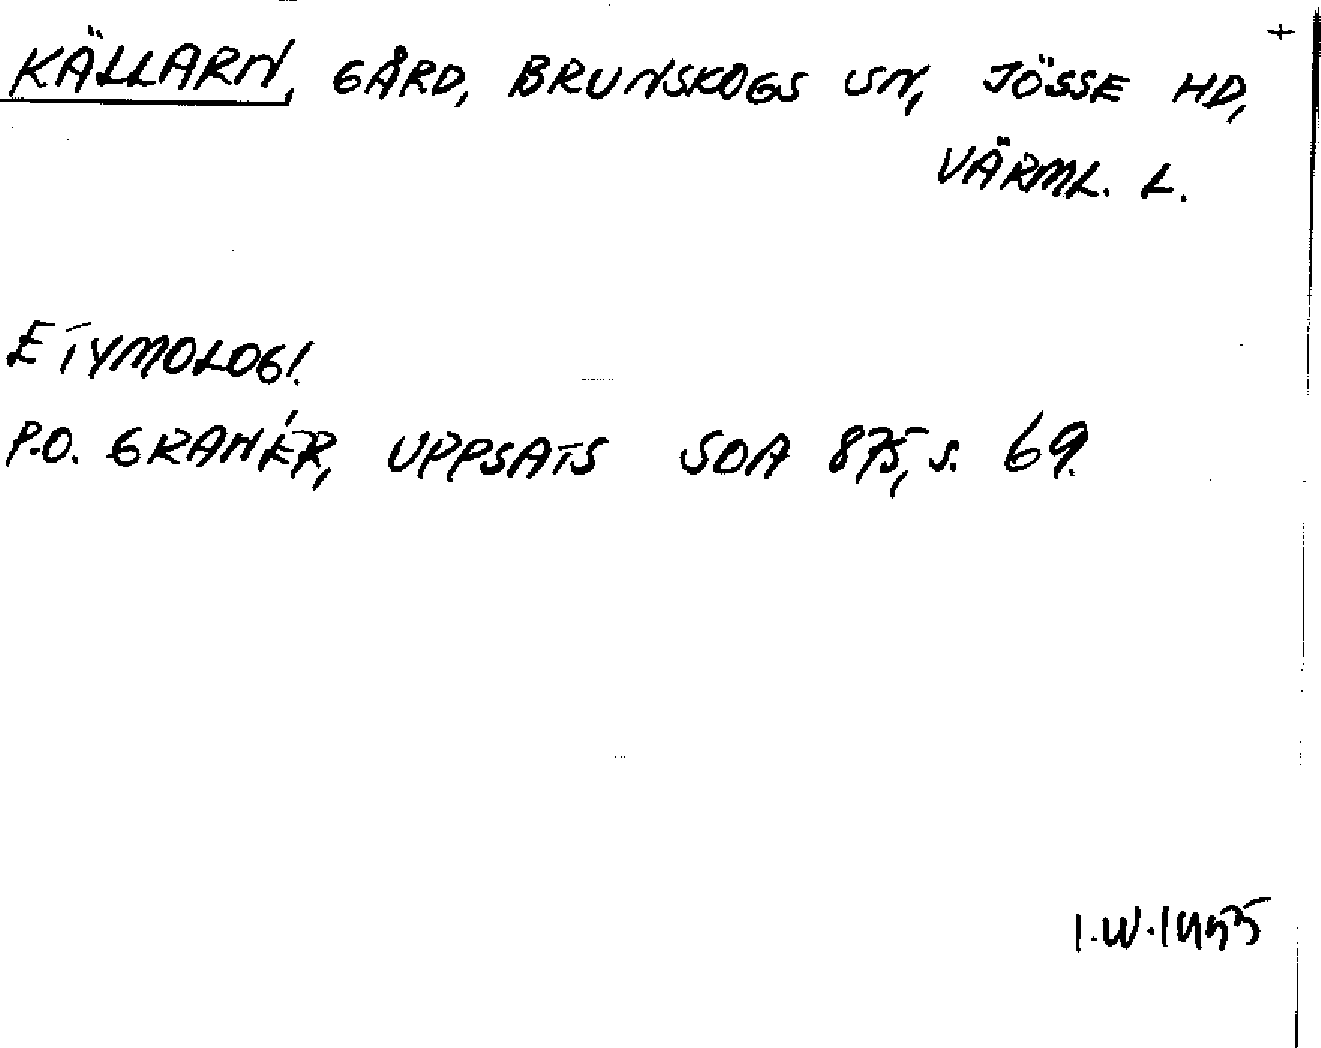 +
KÄLLARN, GÅRD, BRUNSKOGS SN, JÖSSE HD,
VÄRML. L.
ETYMOLOGI.
P.O. GRANÉR, UPPSATS SOA 875, s. 69.
I.W. 1955